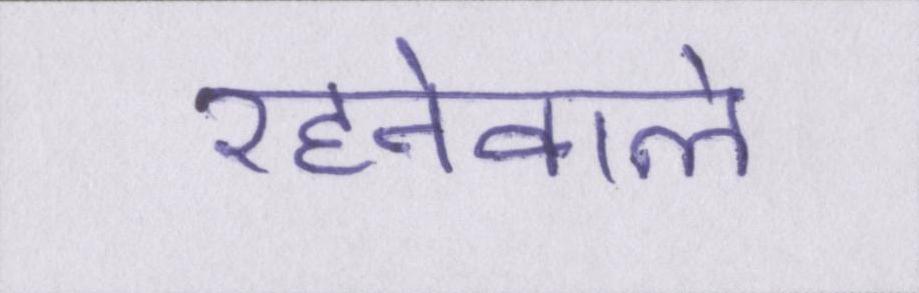 रहनेवाले